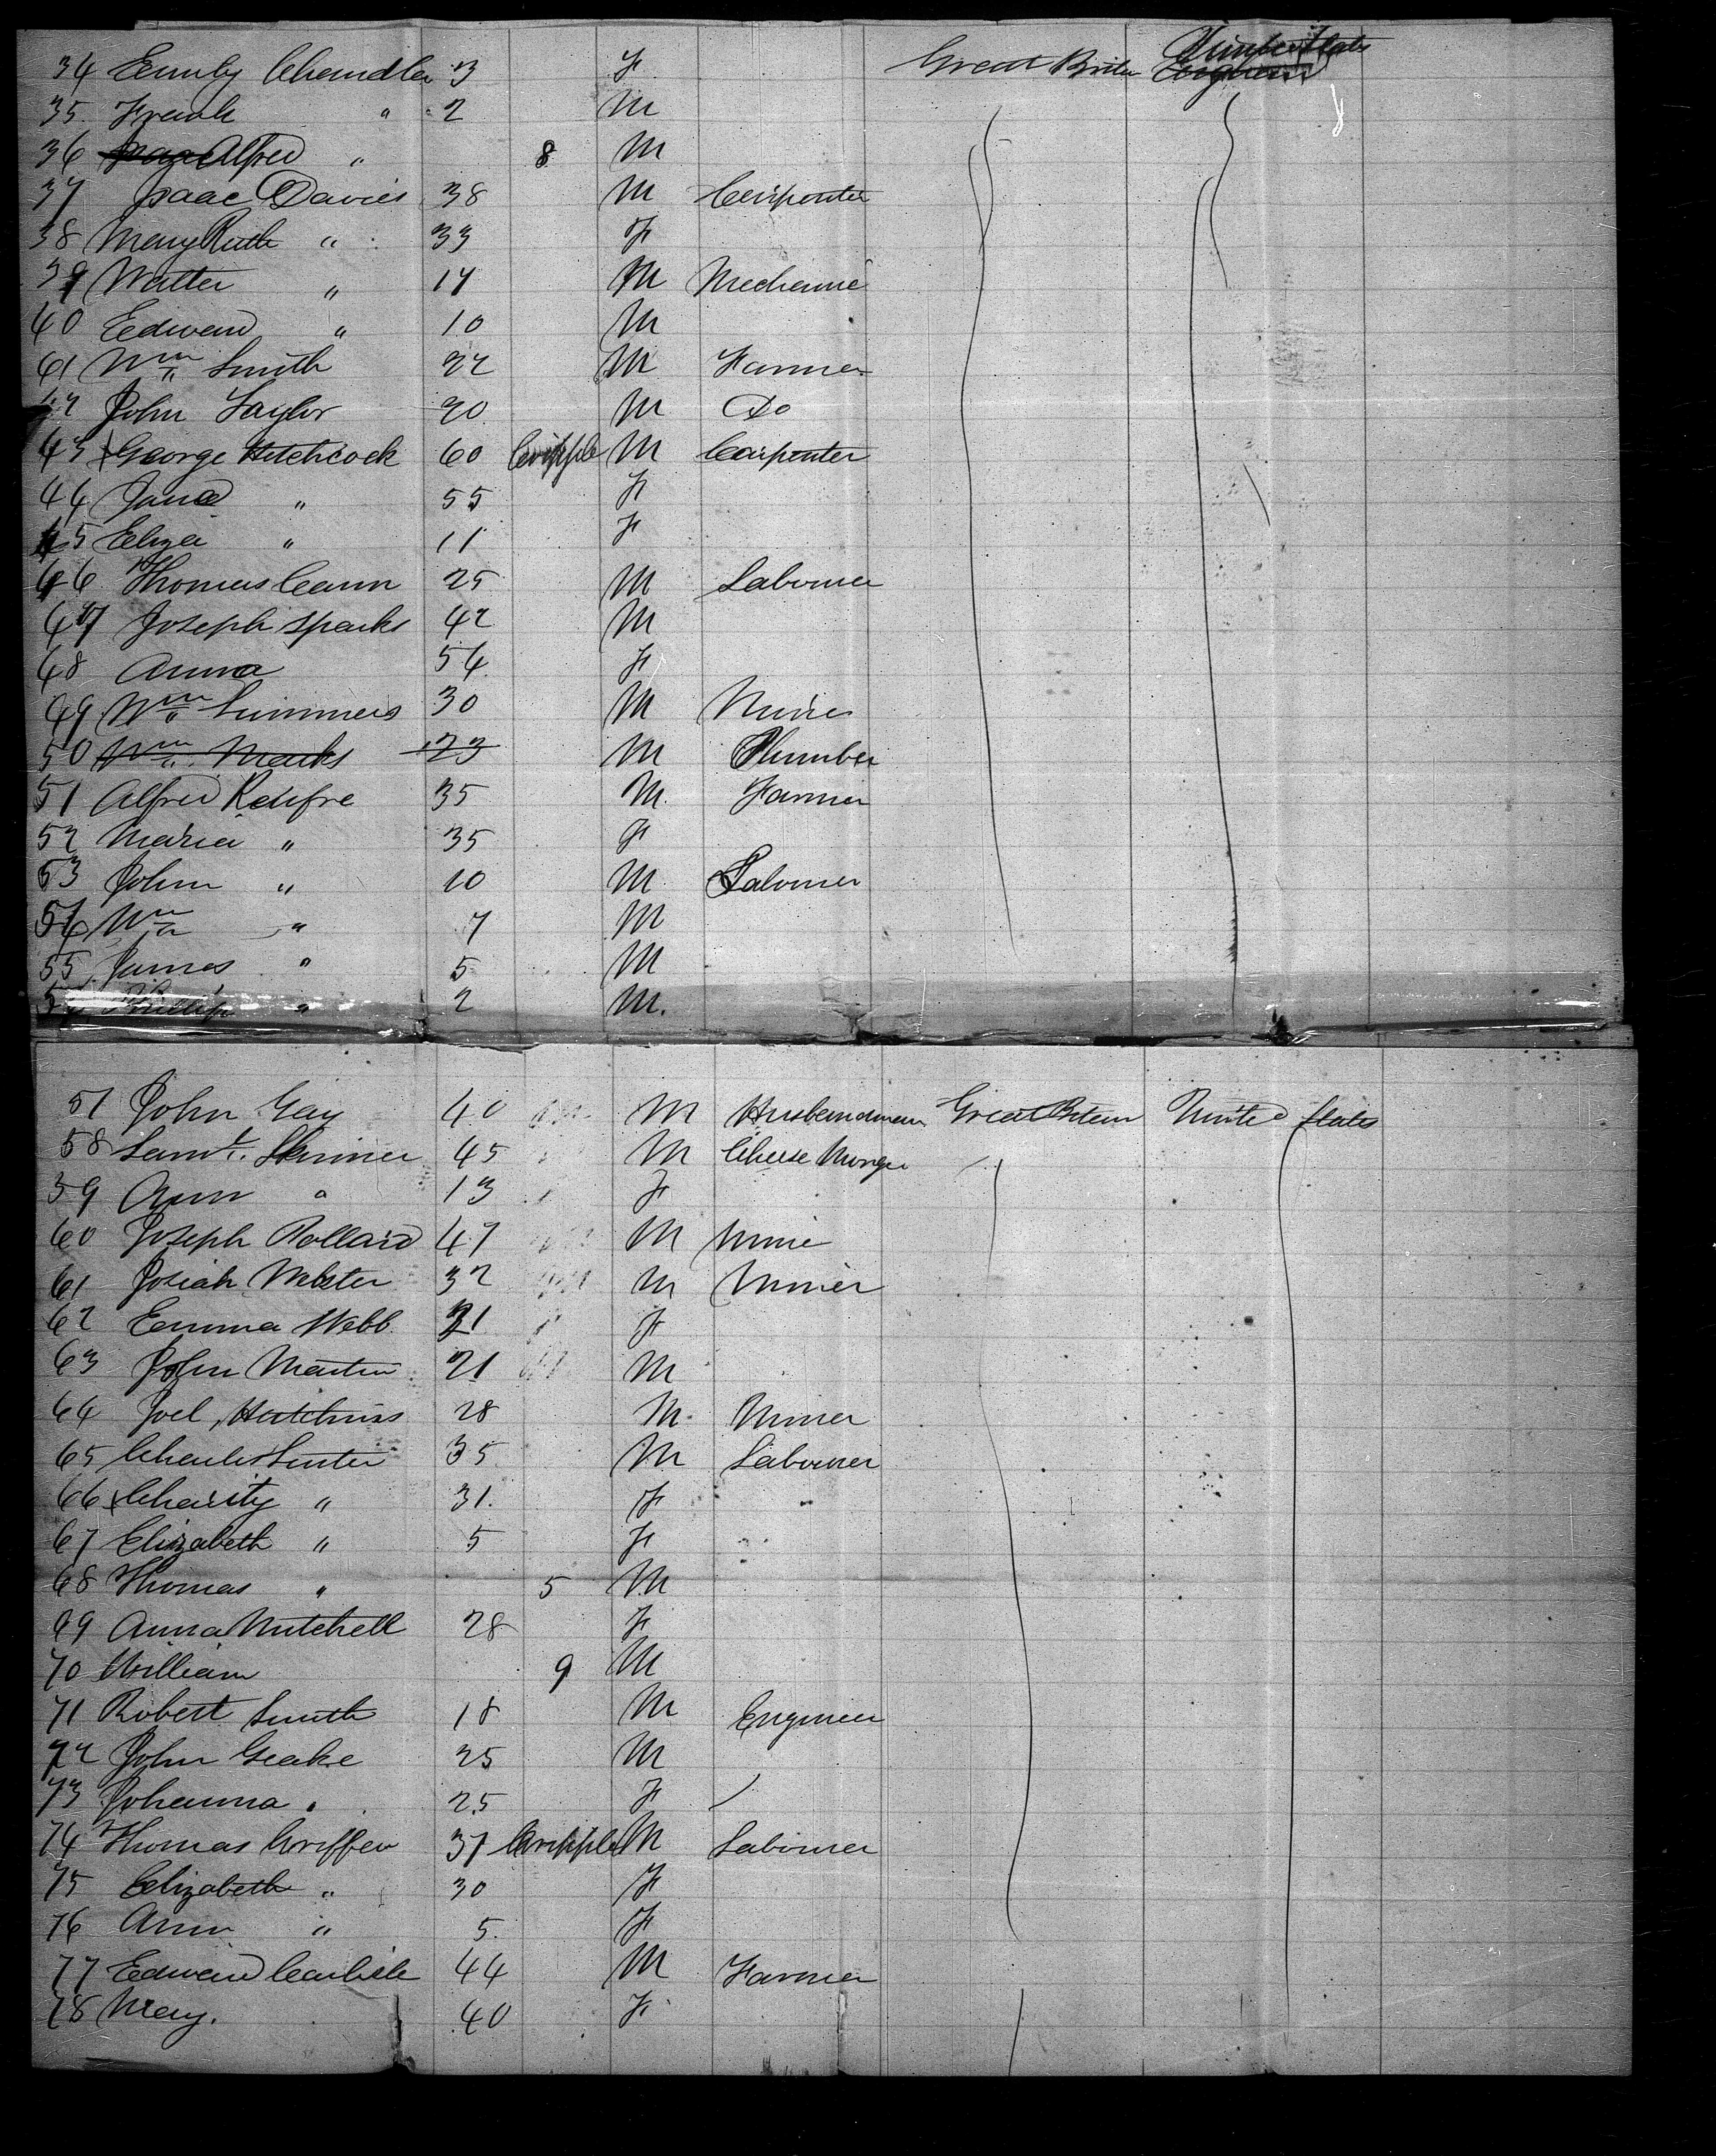 34 Emily Chandler 3 F Great Britn United States England
35 Frank " 2 M
36 Isaac Alfred " 8 M
37 Isaac Davies 38 M Carpenter
38 Mary Ruth " 33 F
39 Walter " 17 M Mechanic
40 Edward " 10 M
41 Wm Smith 22 M Farmer
42 John Taylor 20 M Do
43 George Hitchcock 60 Cripple M Carpenter
44 Jane " 55 F
45 Eliza " 11 F
46 Thomas Cann 25 M Labourer
47 Joseph Sparks 42 M
48 Anna 54 F
49 Wm Summers 30 M Miner
50 Wm Marks 23 M Plumber
51 Alfred 35 M Farmer
52 Maria " 35 F
53 John " 10 M Labourer
54 Wm " 7 M
55 James " 5 M
Phillip " 2 M.
57 John Gay 40 M Husbandman Great Britain United States
58 Saml. Skinner 45 M Cheese Monger
59 Ann " 13 F
60 Joseph Pollard 47 M Miner
61 Josiah Webster 32 M Miner
62 Emma Webb 21 F
63 John Martin 21 M
64 Joel Hutchins 28 M Miner
65 Charles 35 M Labourer
66 x Charity " 31 F
67 Elizabeth " 5 F
68 Thomas " 5 M
69 Anna Mitchell 28 F
70 William 9 M
71 Robert Smith 18 M Engineer
72 John Geake 25 M
73 Johanna " 25 F
74 Thomas Griffen 37 Cripple M Labourer
75 Elizabeth " 30 F
76 Ann " 5 F
77 Edward Carlisle 44 M Farmer
78 Mary. 40 F